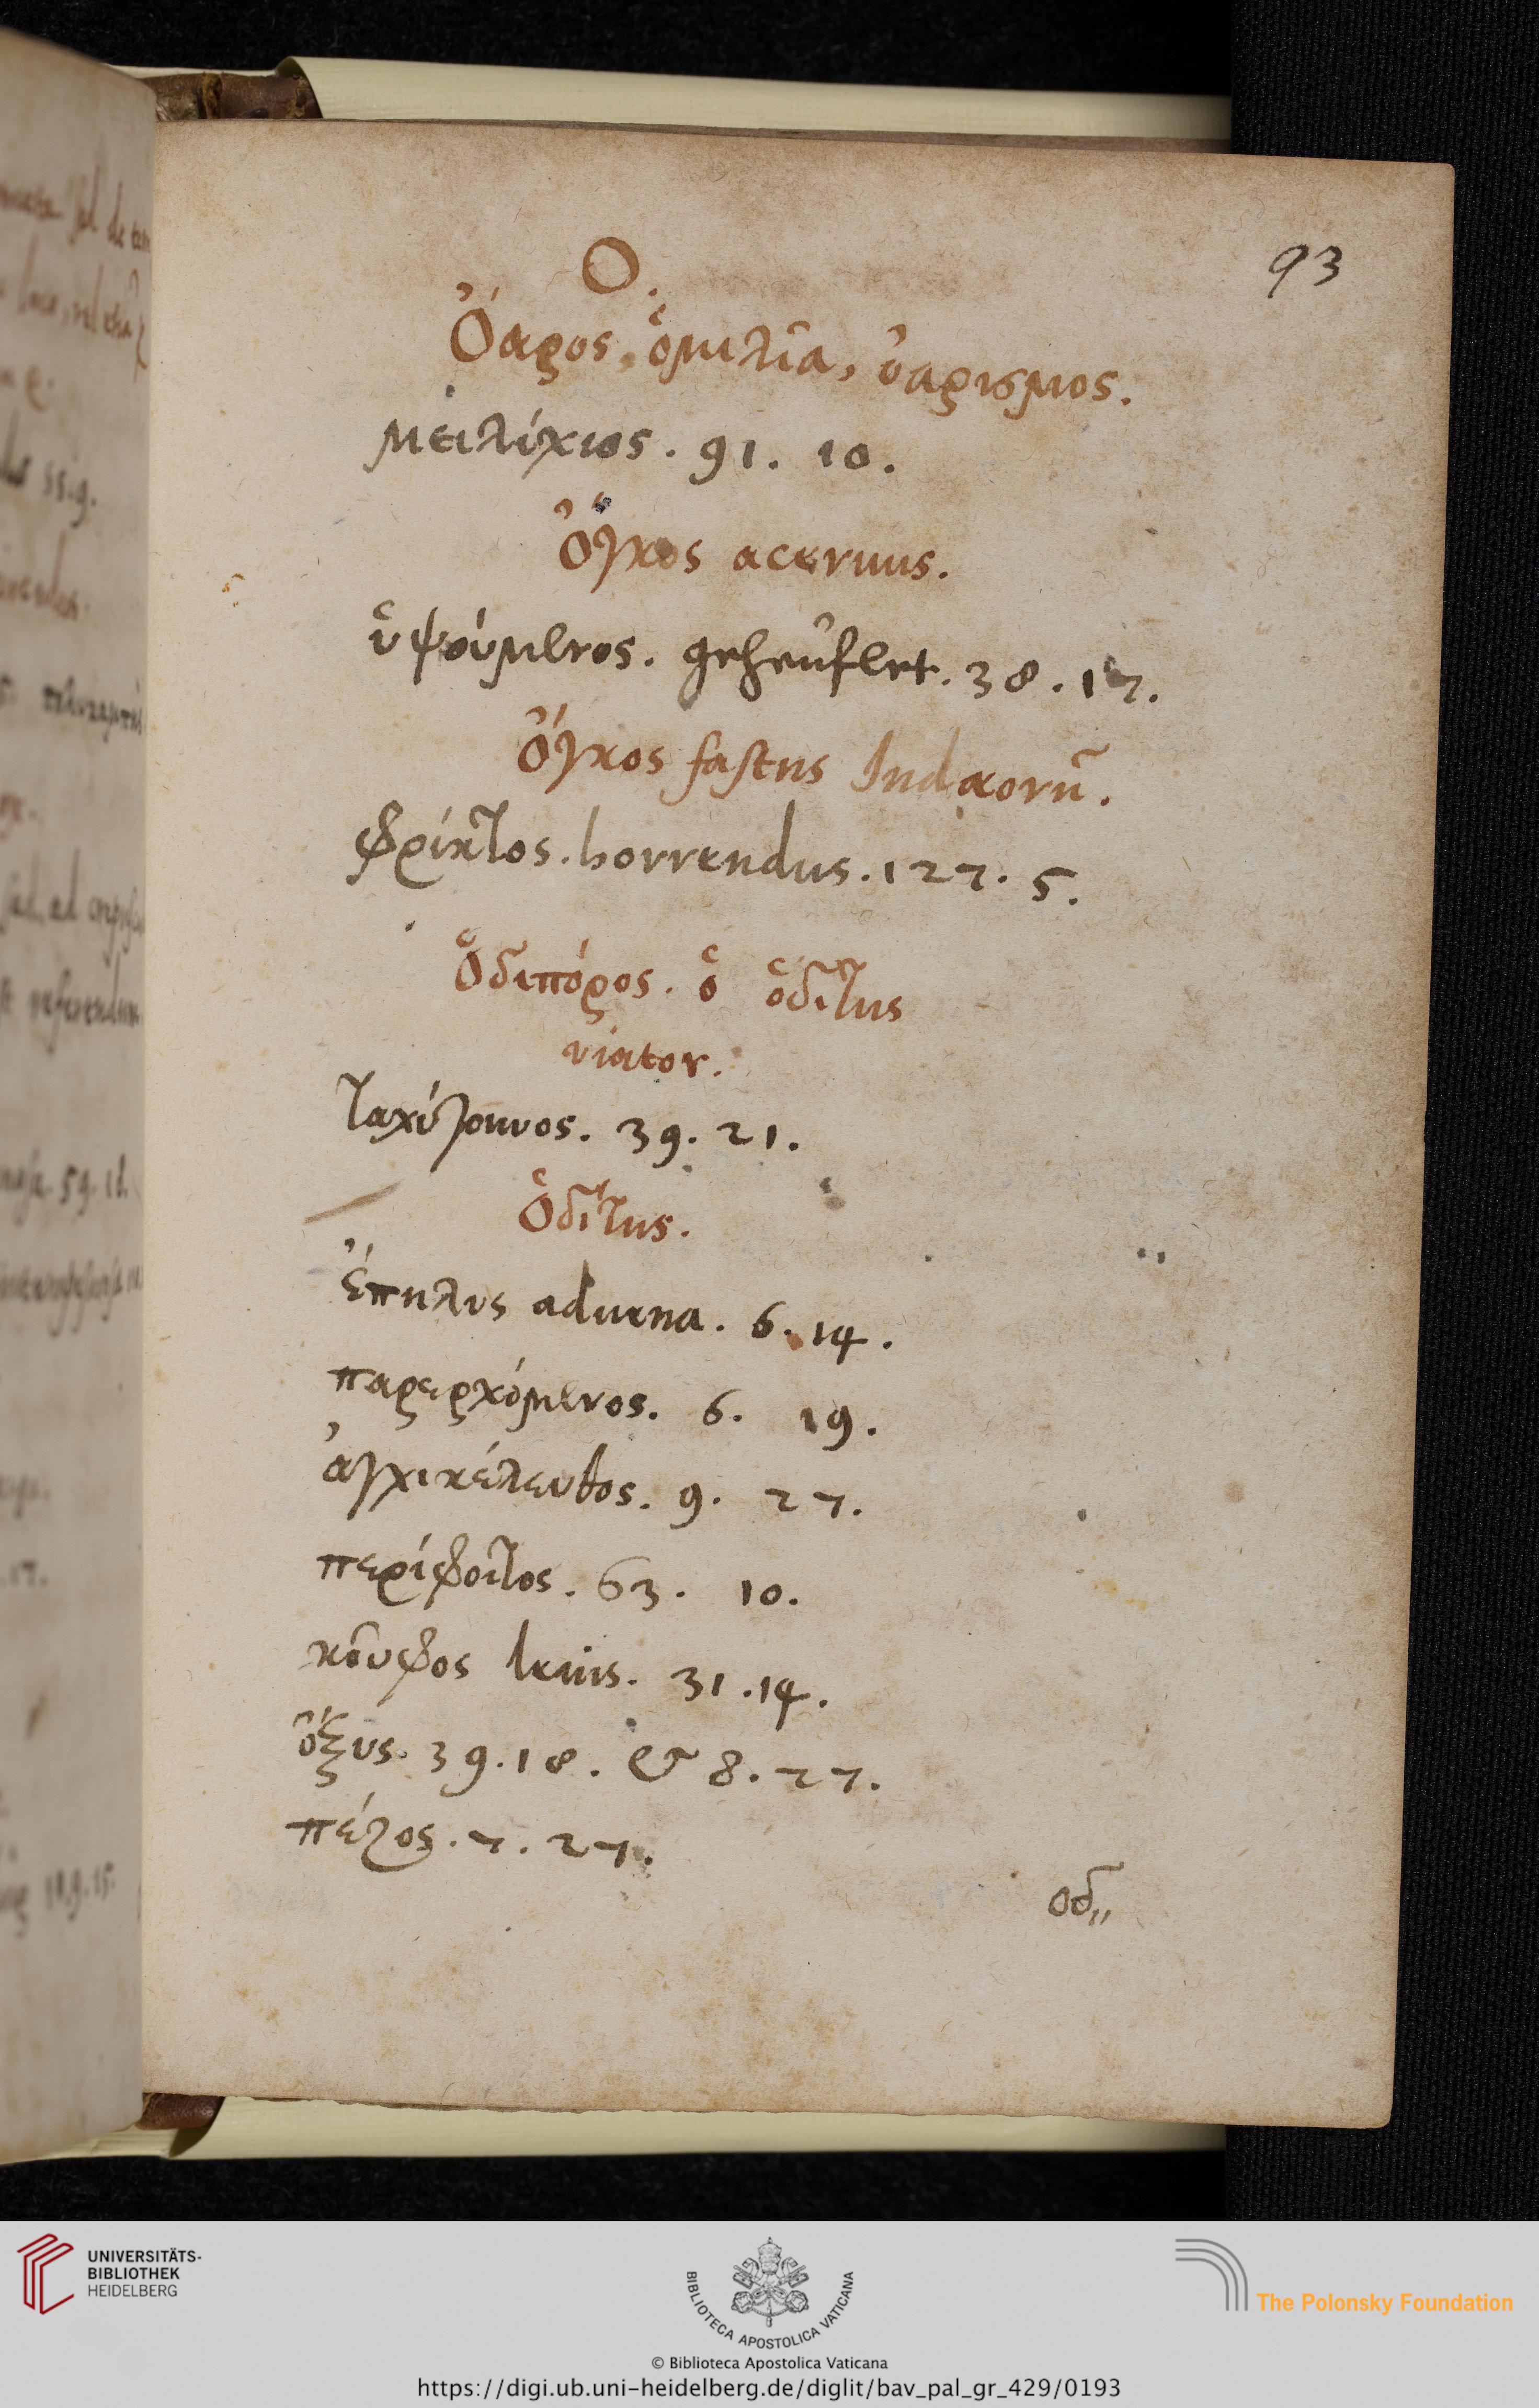 93
Ο.
Ὄαρος, ὁμιλία, ὀαρισμος.
μειλίχιος. 91. 10.
Ὄγκος aceruus.
ὑψούμενος. geheuflet. 38. 17.
Ὄγκος fastus Iudaeorũ.
φρίκτος. horrendus. 127. 5.
Ὁδιπόρος. ὁ ὁδίτης
viator.
ταχύγουνος. 39. 21.
Ὁδίτης.
ἔπηλυς aduena. 6. 14.
παρερχόμενος. 6. 19.
ἀγχικέλευθος. 9. 27.
περίφοιτος. 63. 10.
κοῦφος leuis. 31. 14.
ὄξυς. 39. 18. & 8. 27.
πέζος. 7. 27.
οδ〃
UNIVERSITÄTS-
BIBLIOTHEK
HEIDELBERG
BIBLIOTECA APOSTOLICA VATICANA
The Polonsky Foundation
© Biblioteca Apostolica Vaticana
https://digi.ub.uni-heidelberg.de/diglit/bav_pal_gr_429/0193